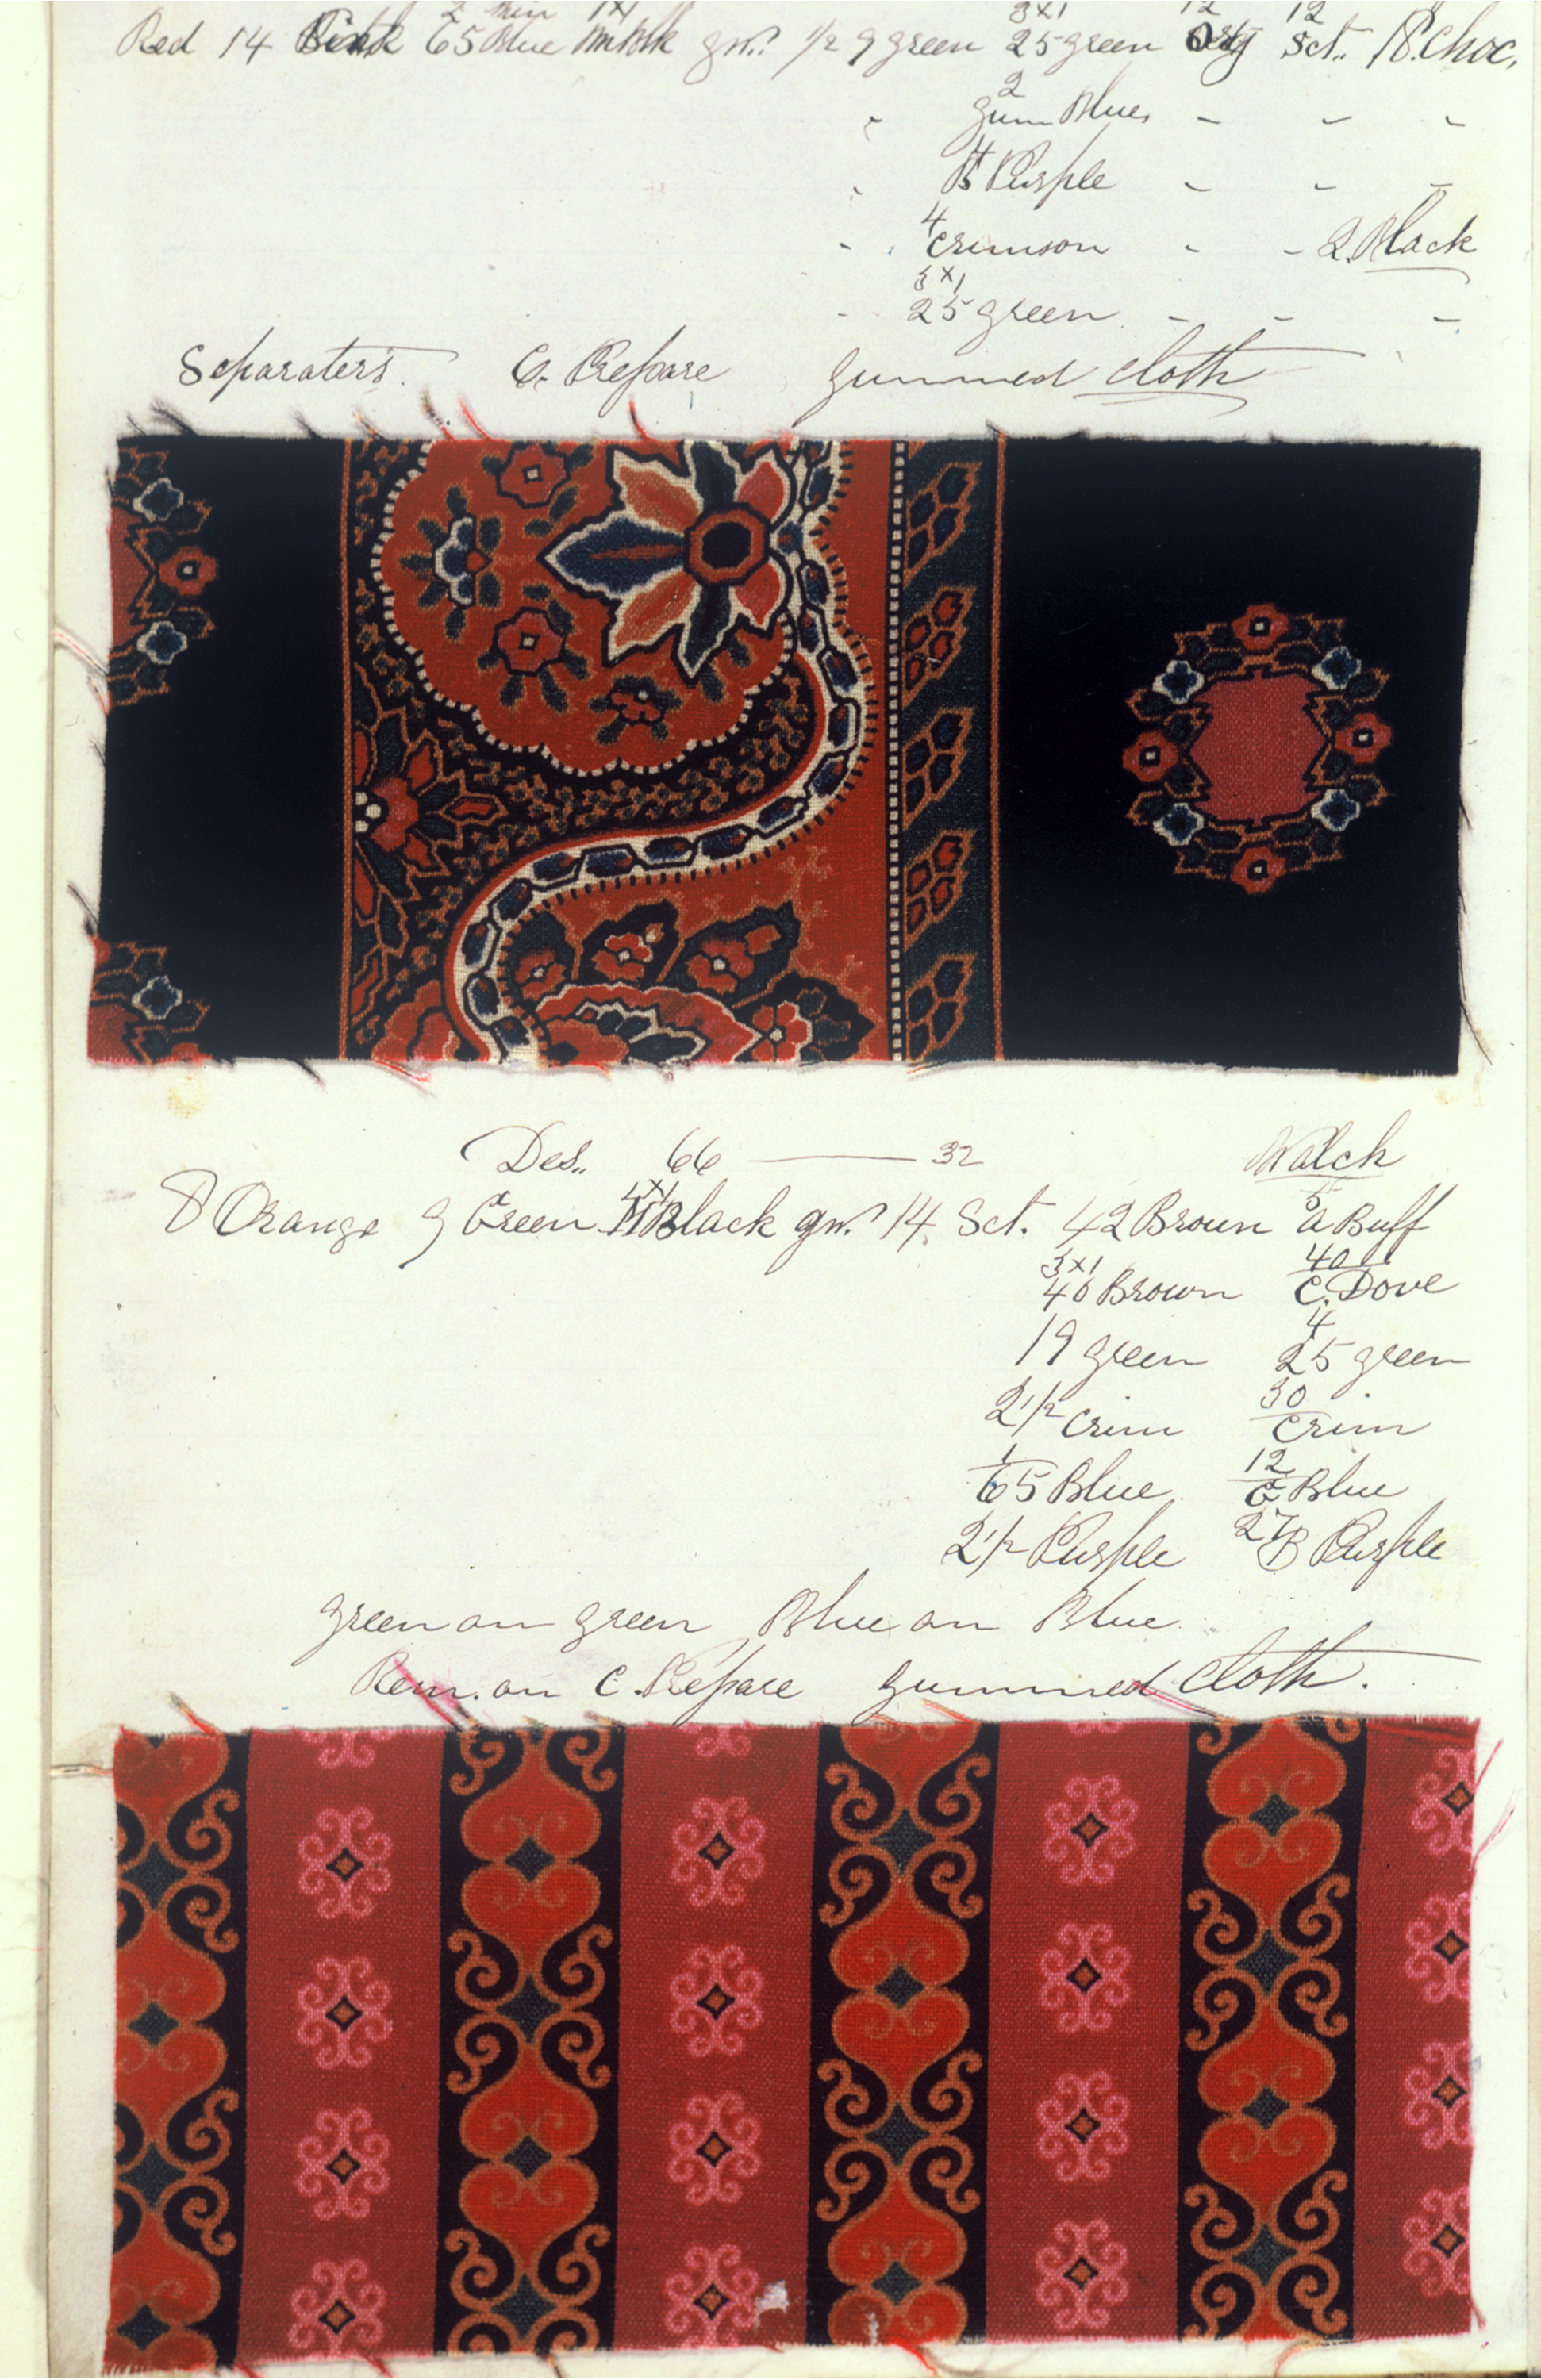 Red 14 Pink 2/65 Blue 1x1 M Blk gr.d 1/2 9 green 3x1 25 green 12 Org 12 Sct. 18. Choc.
" 2 Gum Blue, - - -
" 4 B Purple - - -
" 4 Crimson - - 2. Black
" 3x1 25 green - - -
Separaters. C. Prepare gummed cloth
Des. 66 — 32 Walch
8 Orange 9 Green 4x1 M Black gr.d 14. Sct. 42 Brown 5 A Buff
3x1 40 Brown 40/C. Dove
19 green 4 25 green
2 1/2 Crim 30/Crim
1/65 Blue 12/C Blue
2 1/2 Purple 27 B Purple
green on green Blue on Blue
Rem. on C. Prepare gummed cloth.